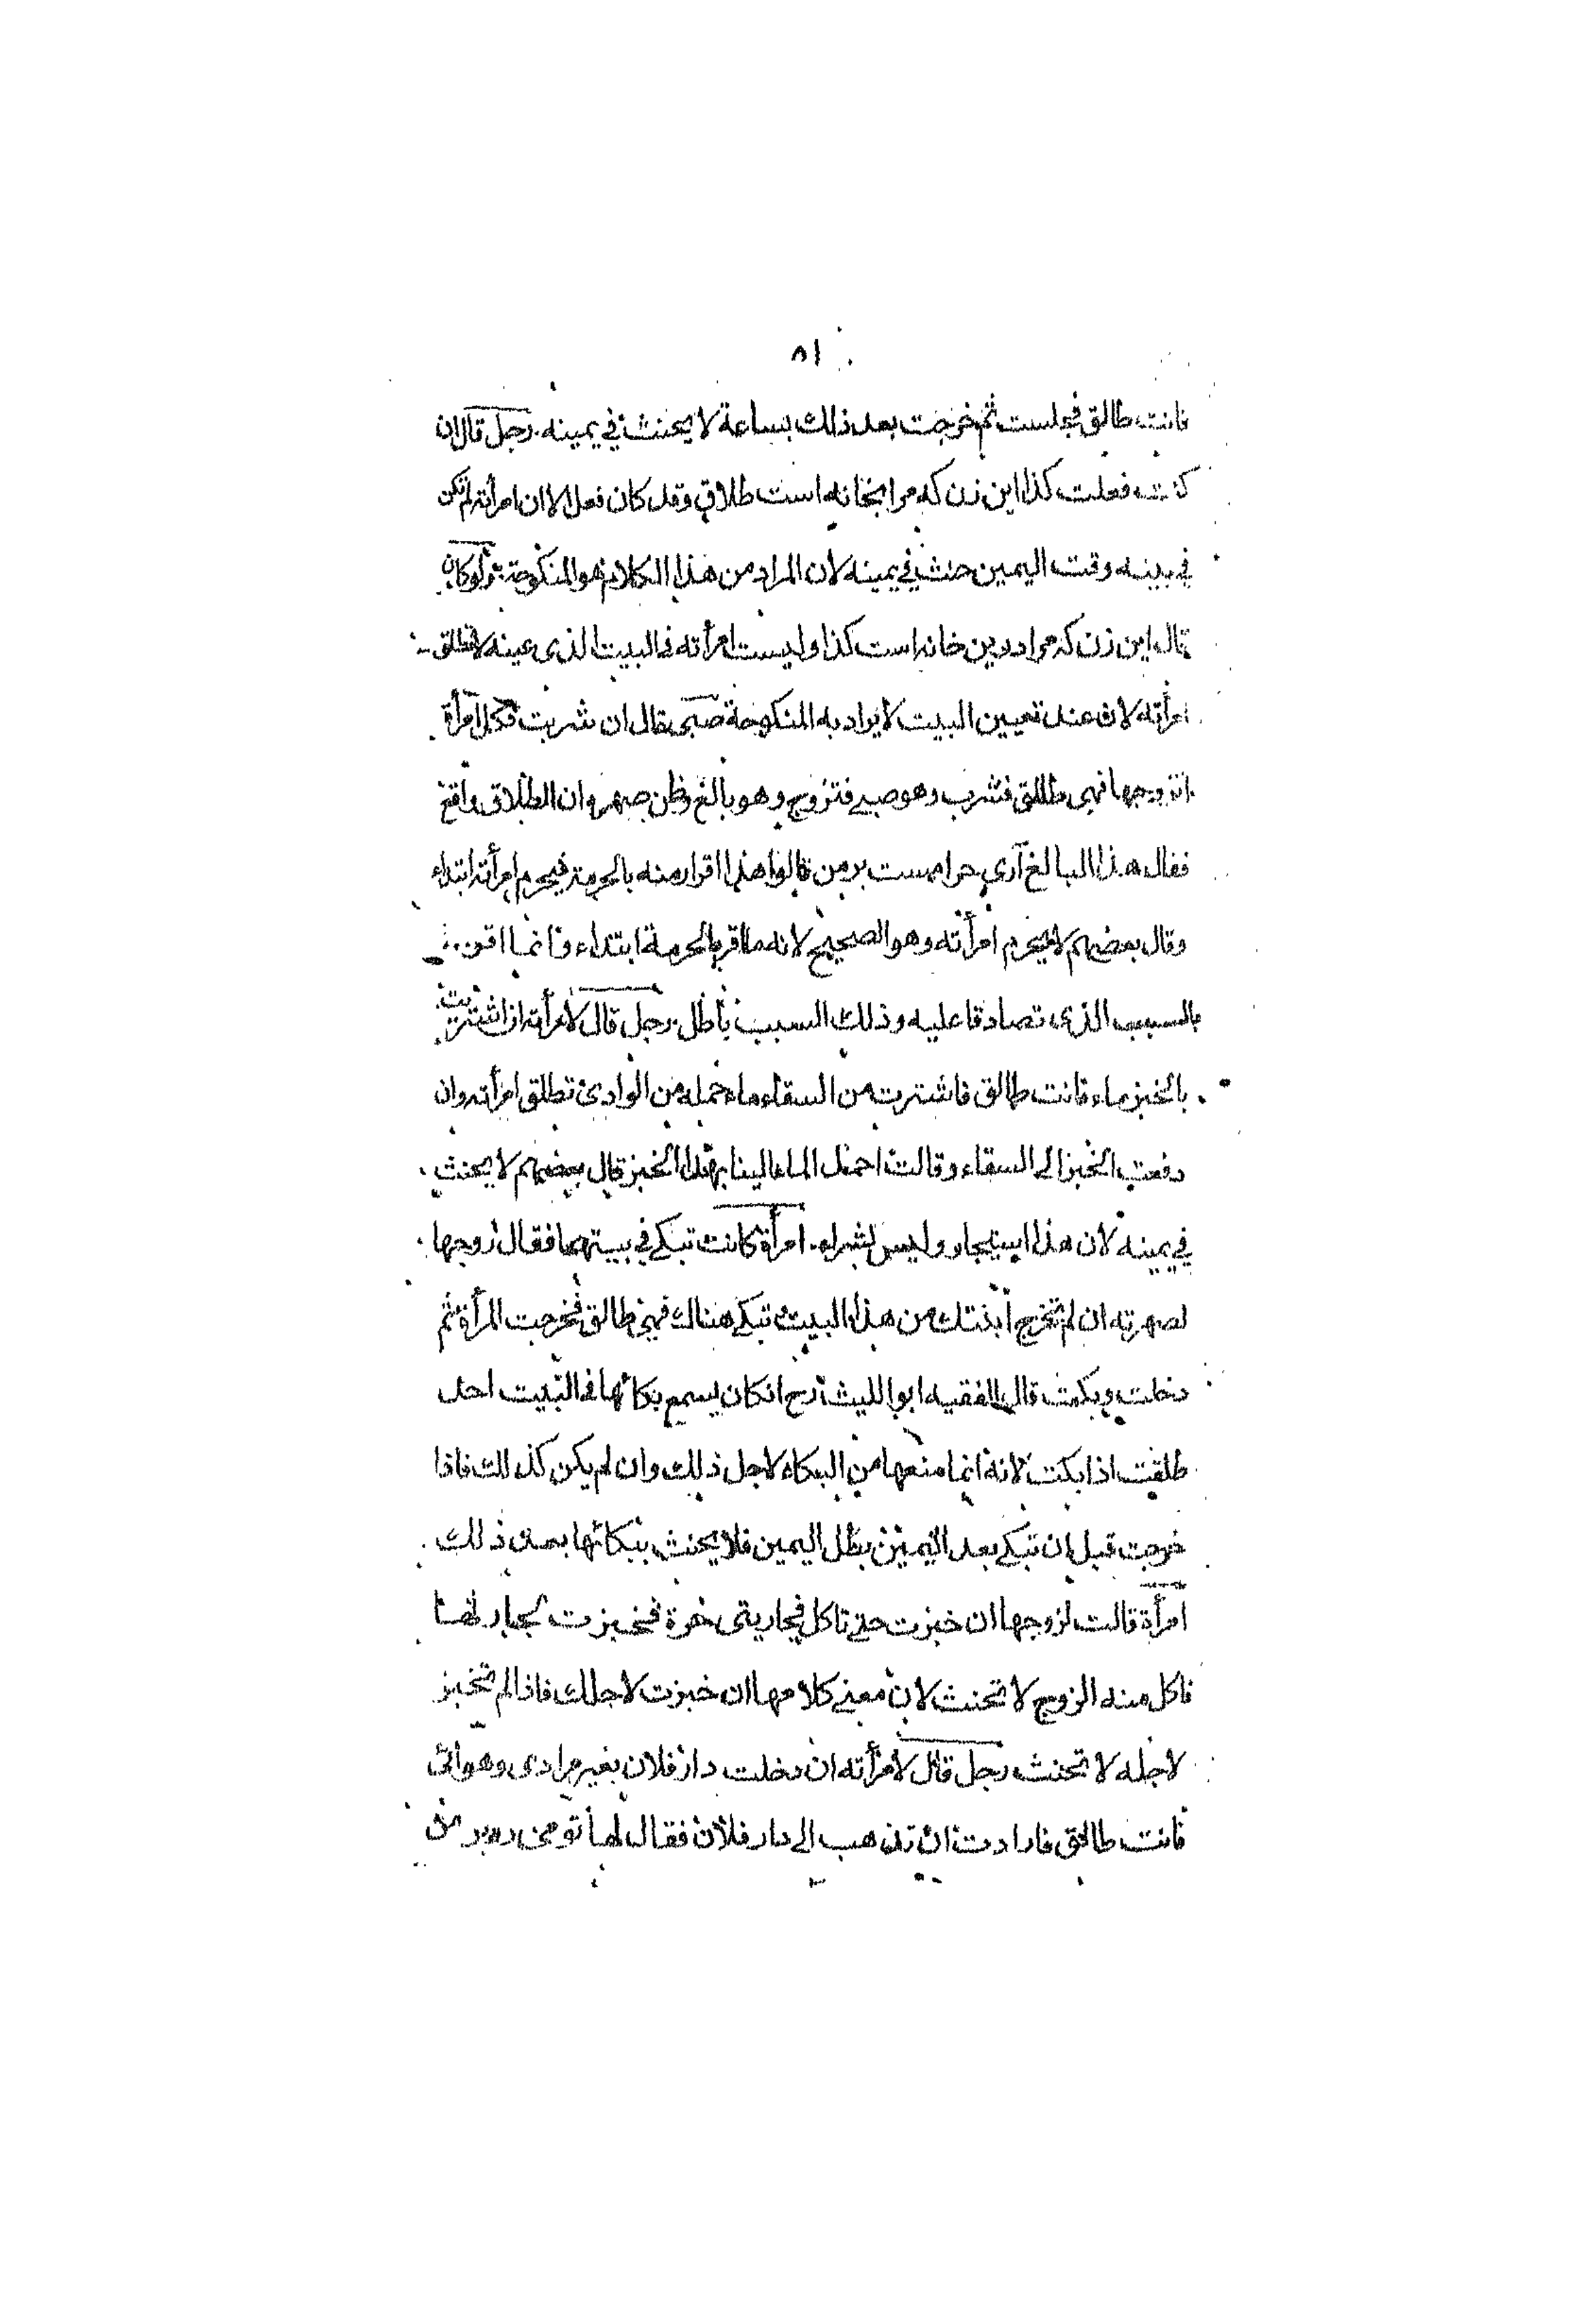 ٨١
فانت طالق فجلست ثم خرجت بعد ذلك بساعة لا يحنث في يمينه . رجل قال ان
كنت فعلت كذا اين زن كه مرا بخانه است طلاق وقد كان فعل الا ان امرأته لم تكن
في بيته وقت اليمين حنث في يمينه لان المراد من هذا الكلام هو المنكوحة ولو كان
قال اين زن كه مرا درين خانه است كذا وليست امرأته في البيت الذي عينه لا تطلق
امرأته لان عند تعيين البيت لا يراد به المنكوحة صبي قال ان شربت فكل امرأة
اتزوجها فهي طالق فشرب وهو صبي فتزوج وهو بالغ وظن صهره ان الطلاق واقع
فقال هذا البالغ آري حرامست بر من قالوا هذا اقرار منه بالحرمة فيحرم امرأته ابتداء
وقال بعضهم لا يحرم امرأته وهو الصحيح لانه ما اقر بالحرمة ابتداء وانما اقر
بالسبب الذي تصادقا عليه وذلك السبب باطل . رجل قال لامرأته ان اشتريت
بالخبز ماء فانت طالق فاشترت من السقاء ماء حمله من الوادي تطلق امرأته وان
دفعت الخبز الى السقاء وقالت احمل الماء الينا بهذا الخبز قال بعضهم لا يحنث
في يمينه لان هذا استيجار وليس بشراء . امرأة كانت تبكي في بيتهما فقال زوجها
لصهرته ان لم تخرج ابنتك من هذا البيت وتبكي هناك فهي طالق فخرجت المرأة ثم
دخلت وبكت قال الفقيه ابو الليث رح انكان يسمع بكائها في البيت احد
طلقت اذا بكت لانه انما منعها من البكاء لاجل ذلك وان لم يكن كذلك فاذا
خرجت قبل ان تبكي بعد اليمين بطل اليمين فلا يحنث ببكائها بعد ذلك
امرأة قالت لزوجها ان خبزت حتى تاكل فجاريتي حرة فخبزت لجار لها
فاكل منه الزوج لا تحنث لان معنى كلامها ان خبزت لاجلك فاذا لم تخبز
لاجله لا تحنث رجل قال لامرأته ان دخلت دار فلان بغير مرادي وهوائي
فانت طالق فارادت ان تذهب الى دار فلان فقال لها تو